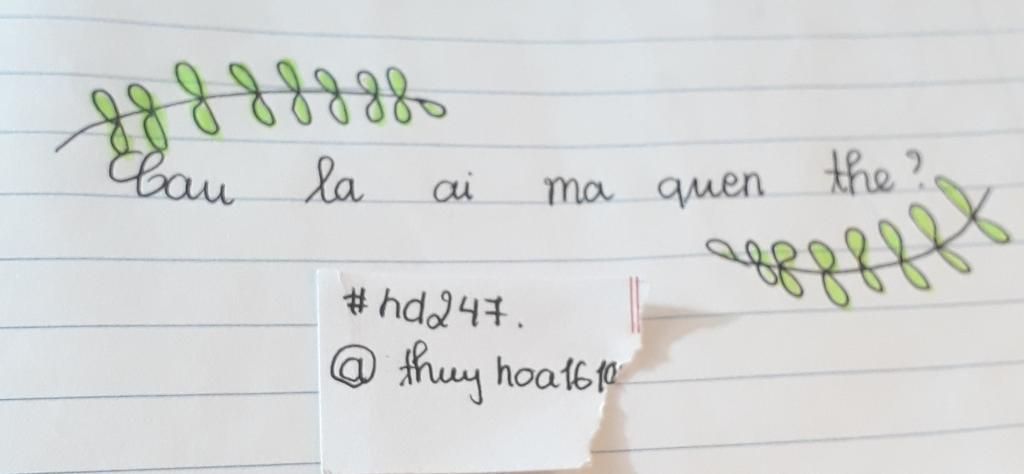 Cau la ai ma quen the?
#hd247.
@ thuy hoa1610